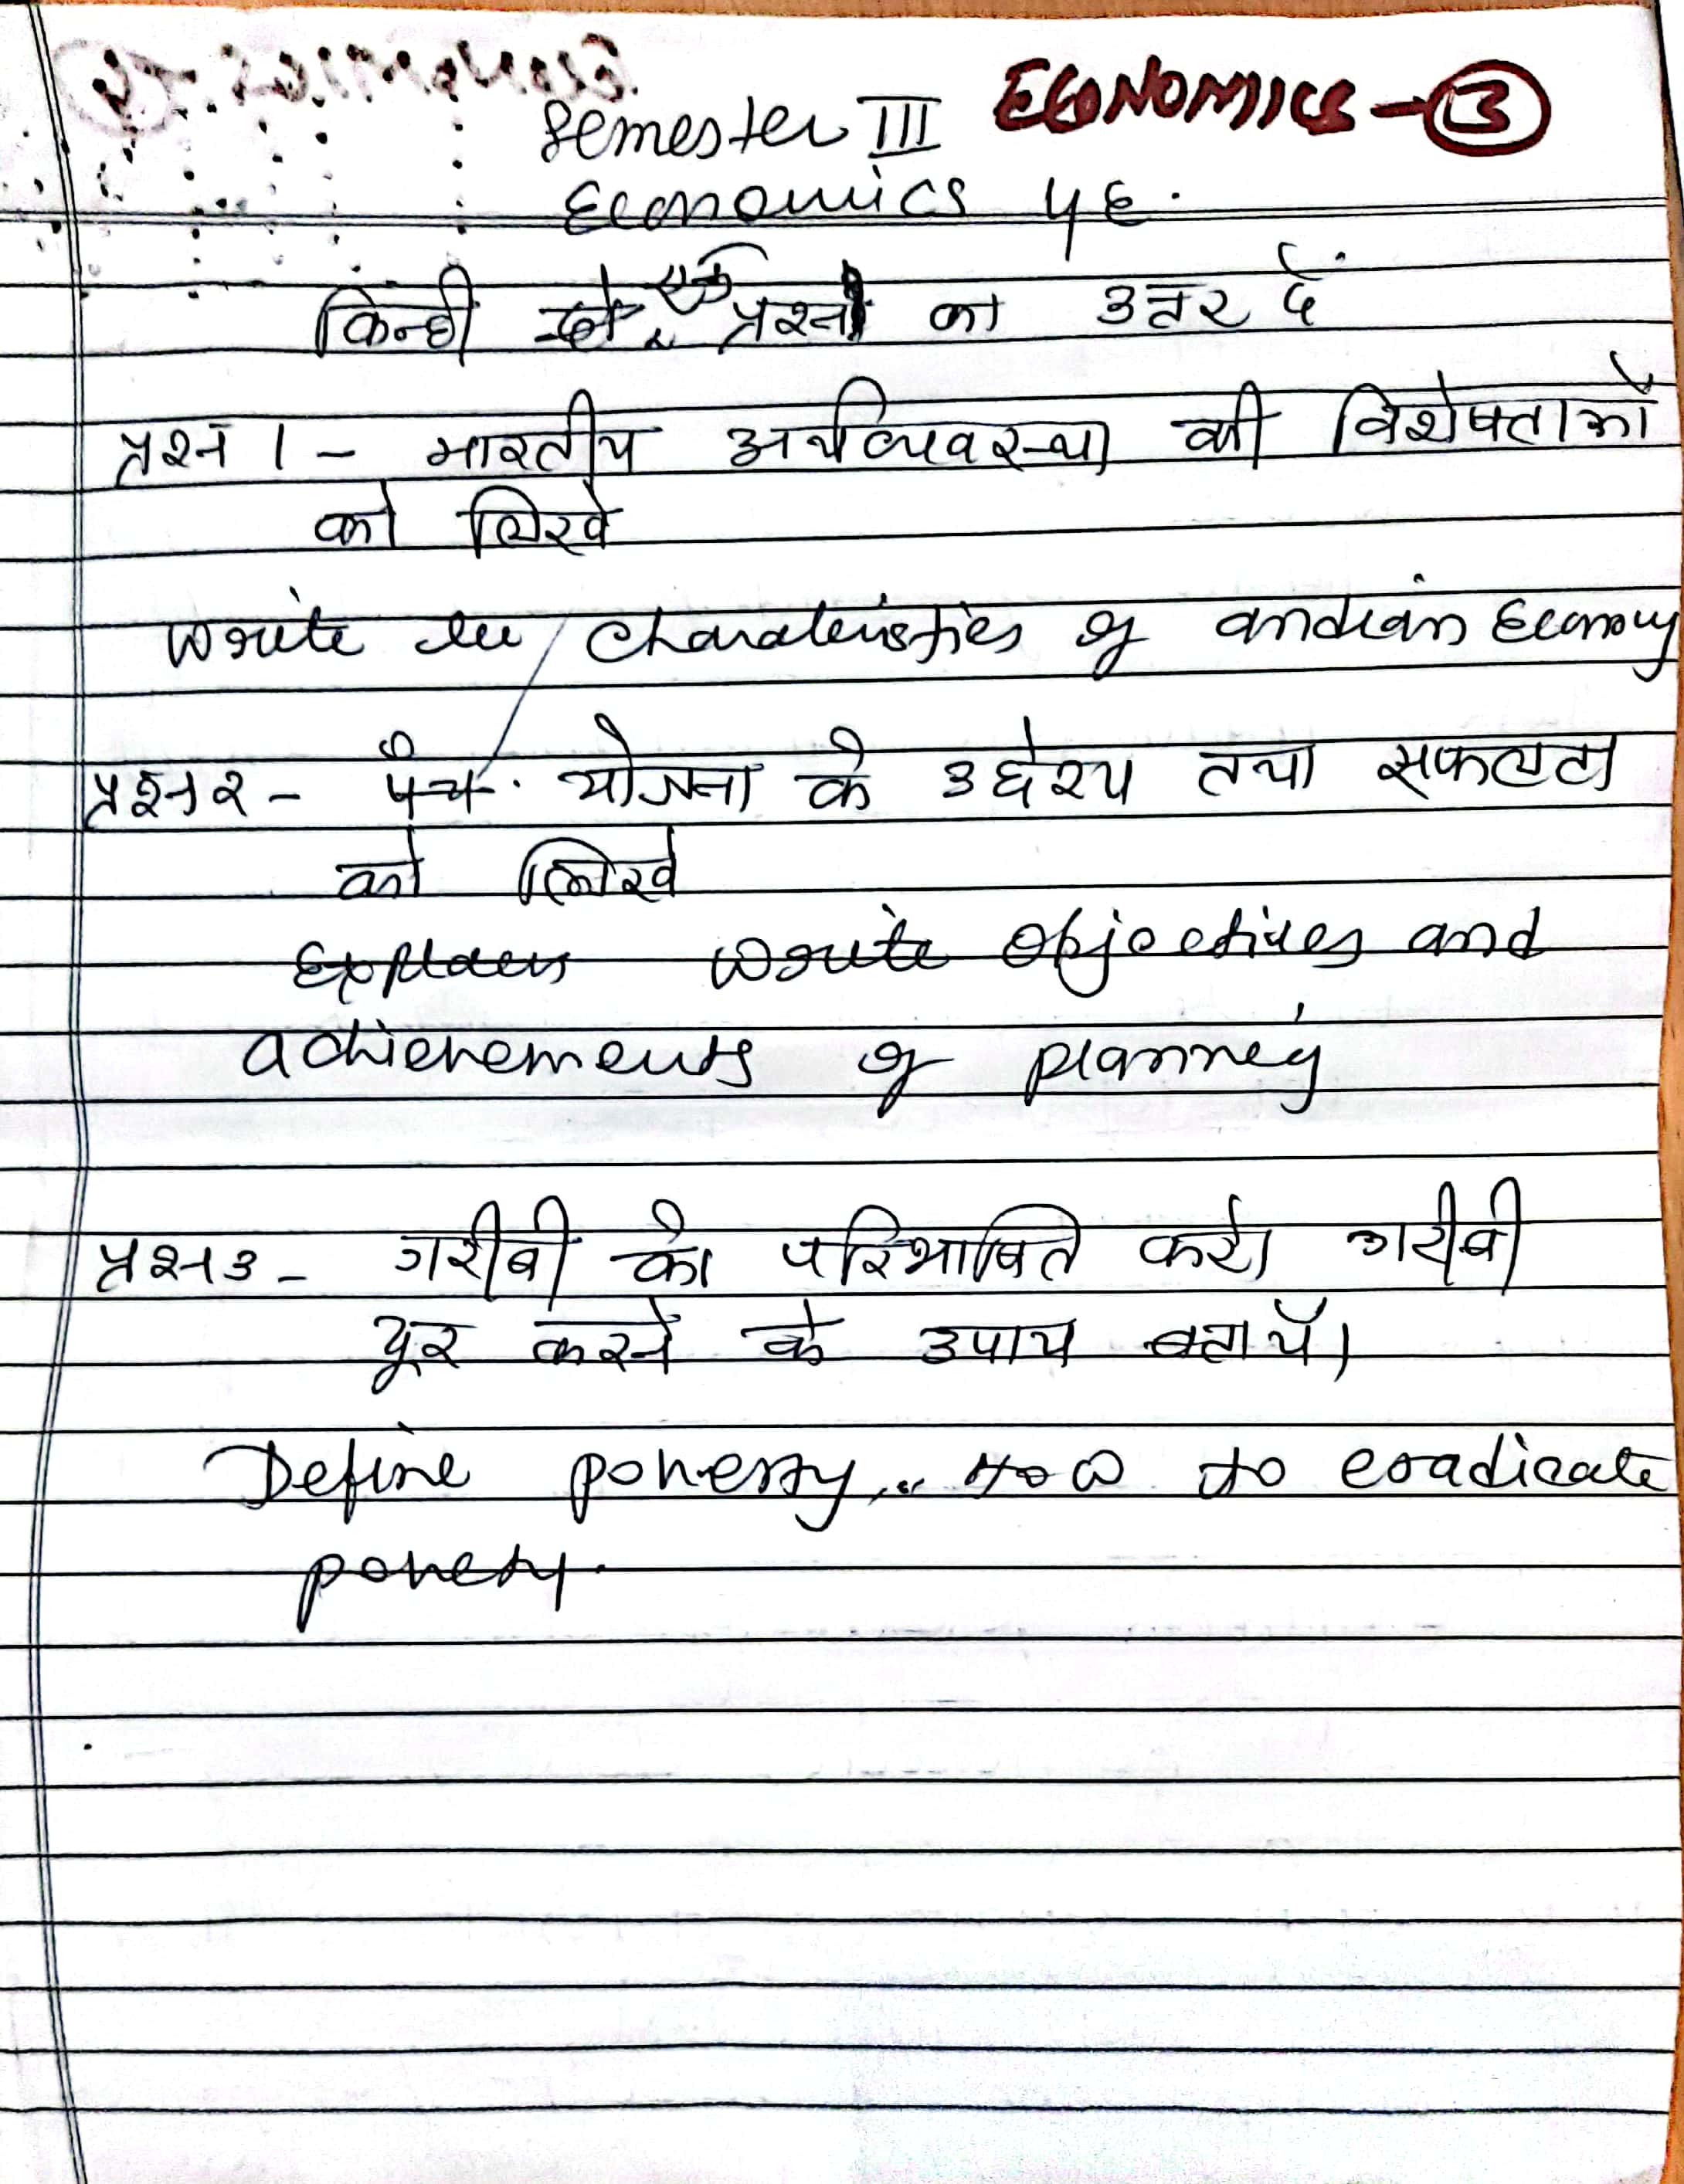 ECONOMICS - 3
Semester III
Economics
किन्ही एक प्रश्न का उत्तर दें
प्रश्न 1 - भारतीय अर्थव्यवस्था की विशेषताओं
को लिखे
Write the characteristics of Indian Economy
प्रश्न २ - योजना के उद्देश्य तथा सफलता
को लिखे
Write objectives and
achievements of planning
प्रश्न ३ - गरीबी को परिभाषित करे। गरीबी
दूर करने के उपाय बतायें।
Define poverty. How to eradicate
poverty.